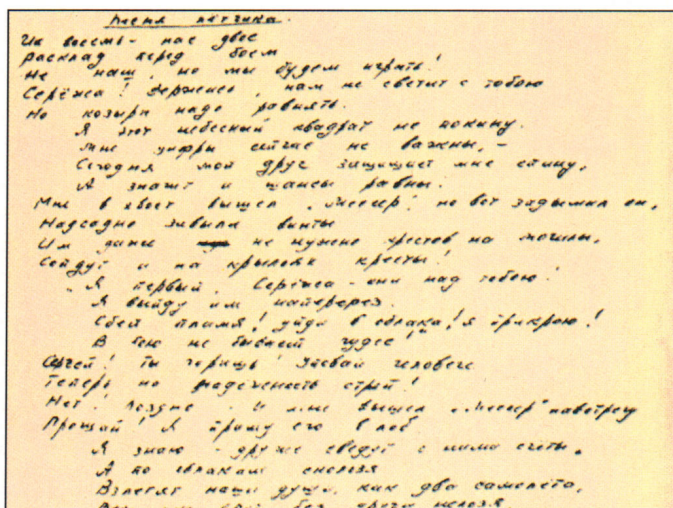 Песня лётчика.
Их восемь - нас двое
Расклад перед боем
Не наш, но мы будем играть!
Серёжа! Держись, нам не светит с тобою
Но козыри надо равнять.
Я этот небесный квадрат не покину.
Мне цифры сейчас не важны, -
Сегодня мой друг защищает мне спину,
А значит и шансы равны.
Мне в хвост вышел "Мессер", но вот задымил он,
Надсадно завыли винты
Им даже не нужно крестов на могилы,
Сойдут и на крыльях кресты!
Я первый, Серёжа - они над тобою!
Я выйду им наперерез.
Сбей пламя! уйди в облака! я прикрою!
В бою не бывает чудес!
Сергей! Ты горишь! Уповай человече
Теперь на надёжность строп!
Нет! Поздно - и мне вышел "Мессер" навстречу
Прощай! Я приму его в лоб
Я знаю - другие сведут с ними счёты.
А по облакам скользя
Взлетят наши души, как два самолёта,
друга нельзя.